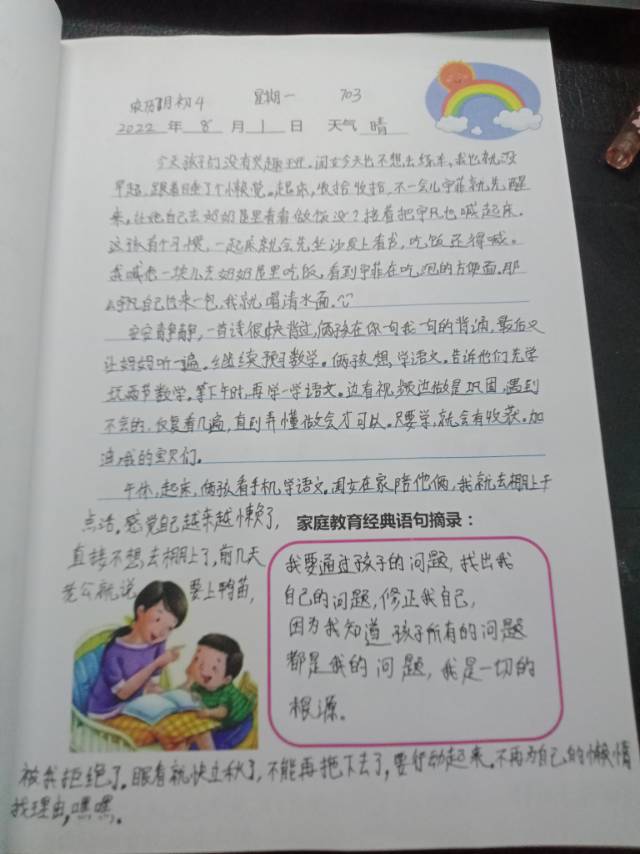 农历7月初4 星期一 703
2022 年 8 月 1 日 天气 晴
今天孩子们没有兴趣班。闺女今天也不想去练车,我也就没
早起,跟着睡了个懒觉。起床,收拾收拾,不一会儿宇菲就先醒
来,让她自己去奶奶屋里看看做饭没?接着把宇凡也喊起床。
这孩有个习惯,一起床就会先坐沙发上看书,吃饭还得喊。
我喊他一块儿去奶奶屋里吃饭,看到宇菲在吃泡的方便面。那
宇凡自己也来一包,我就喝清水面。
安安静静,一首诗很快背过,俩孩在你一句我一句的背诵,最后又
让妈妈听一遍。继续预习数学。俩孩想学语文。告诉他们先学
玩两节数学。等下午时,再学一学语文。边看视频边做是巩固,遇到
不会的,反复看几遍,直到弄懂做会才可以。只要学,就会有收获。加
油,我的宝贝们。
午休,起床,俩孩看手机学语文。闺女在家陪他俩,我就去棚上干
点活。感觉自己越来越懒了, 家庭教育经典语句摘录:
直接不想去棚上了,前几天
老公就说 要上鸭苗,
我要通过孩子的问题,找出我
自己的问题,修正我自己,
因为我知道孩子所有的问题
都是我的问题,我是一切的
根源。
被我拒绝了。眼看就快立秋了,不能再拖下去了,要行动起来。不再为自己的懒惰
找理由,嘿嘿。